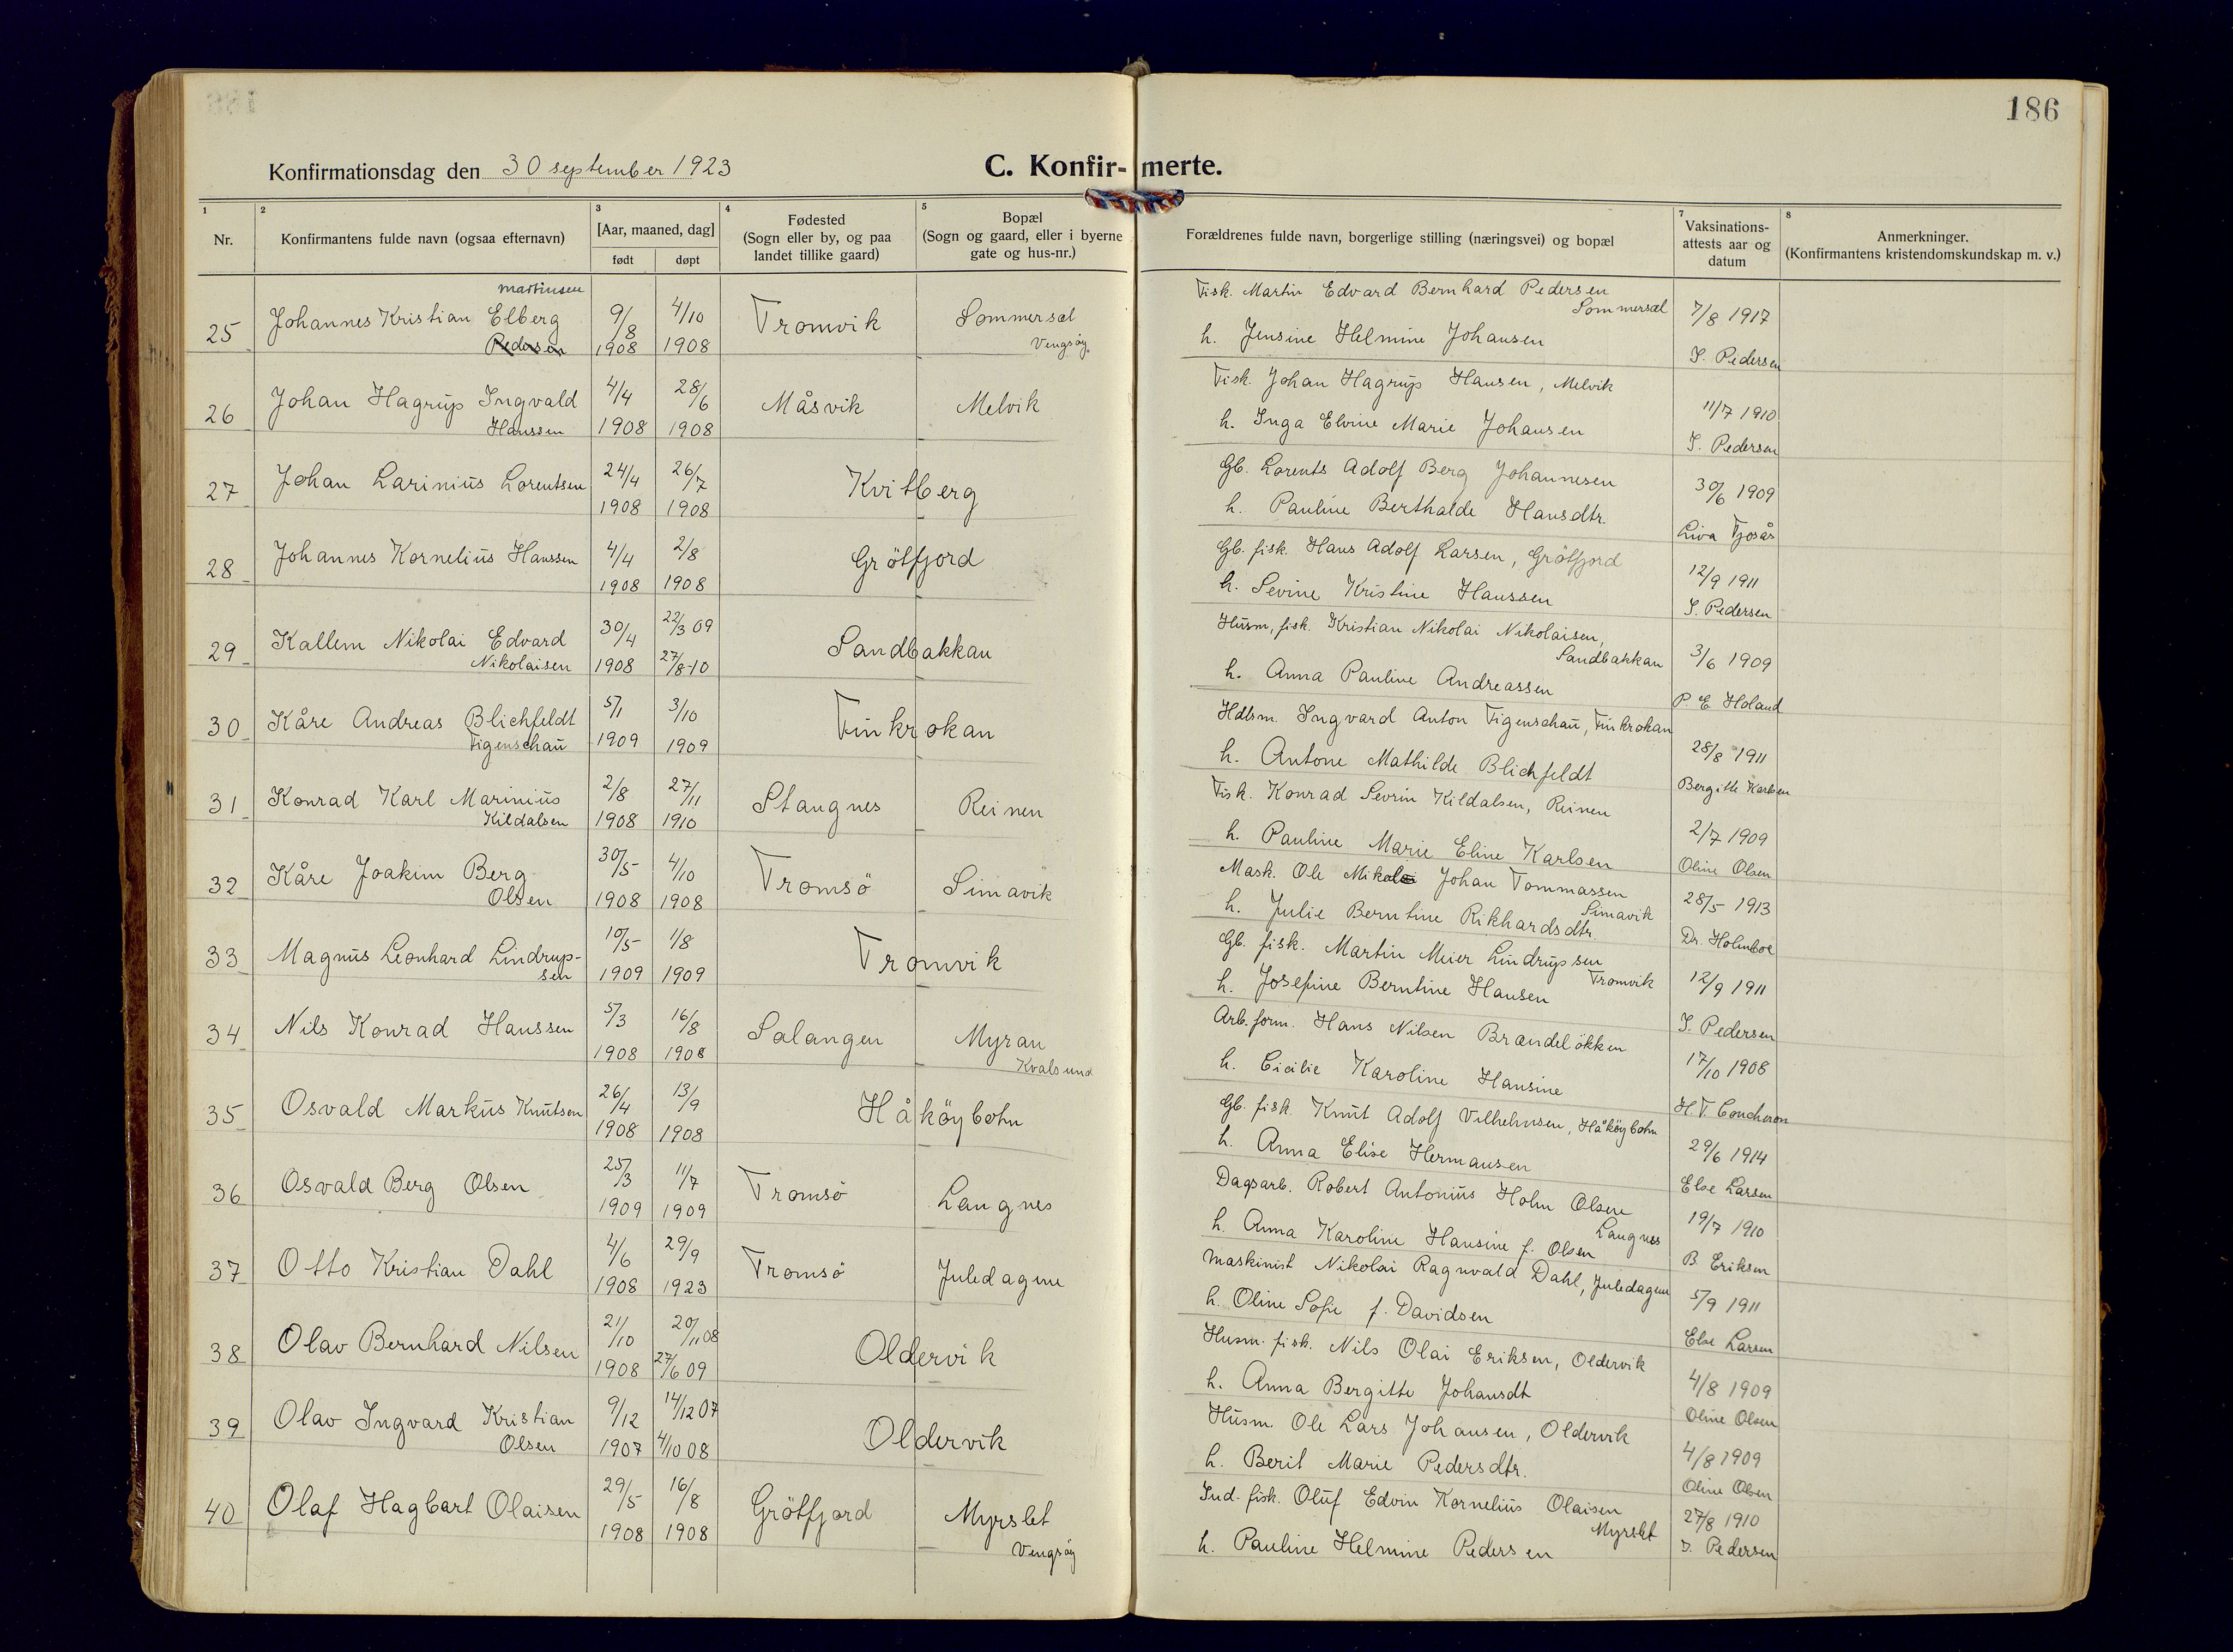 186
Konfirmationsdag den 30 september 1923
C. Konfir-merte.
1 2 3 4 5 7 8
Nr.
Konfirmantens fulde navn (ogsaa efternavn)
[Aar, maaned, dag]
født døpt
Fødested
(Sogn eller by, og paa
landet tillike gaard)
Bopæl
(Sogn og gaard, eller i byerne
gate og hus-nr.)
Forældrenes fulde navn, borgerlige stilling (næringsvei) og bopæl
Vaksinations-
attests aar og
datum
Anmerkninger.
(Konfirmantens kristendomskundskap m. v.)
martinsen
25 Johannes Kristian Elberg 9/8 4/10 Tromvik Sommersæl
Pedersen 1908 1908 Vengsöy.
Fisk. Martin Edvard Bernhard Pedersen
Sommersæl 7/8 1917
h. Jensine Helmine Johansen
S. Pedersen
26 Johan Hagrup Ingvald 4/4 28/6 Måsvik Melvik
Hanssen 1908 1908
Fisk. Johan Hagrup Hansen, Melvik
11/7 1910
h. Inga Elvine Marie Johansen
S. Pedersen
27 Johan Larinius Lorentsen 24/4 26/7 Kvitberg
1908 1908
Gb. Lorents Adolf Berg Johannesen
30/6 1909
h. Pauline Berthalde Hansdtr.
Liva Tjosås
28 Johannes Kornelius Hanssen 4/4 2/8 Grötfjord
1908 1908
Gb. fisk. Hans Adolf Larsen, Grötfjord
12/9 1911
h. Sevine Kristine Hanssen
S. Pedersen
29 Kallem Nikolai Edvard 30/4 22/3 09 Sandbakkan
Nikolaisen 1908 27/8-10
Husm, fisk. Kristian Nikolai Nikolaisen,
Sandbakkan 3/6 1909
h. Anna Pauline Andreassen
P. E. Holand
30 Kåre Andreas Blichfeldt 5/1 3/10 Finkrokan
Figenschau 1909 1909
Hdlsm. Ingvard Anton Figenschau, Finkrokan
28/8 1911
h. Antone Mathilde Blichfeldt
Bergitte Karlsen
31 Konrad Karl Marinius 2/8 27/11 Stangnes Reinen
Kildalsen 1908 1910
Fisk. Konrad Sevrin Kildalsen, Reinen
2/7 1909
h. Pauline Marie Eline Karlsen
Oline Olsen
32 Kåre Joakim Berg 30/5 4/10 Tromsö Simavik
Olsen 1908 1908
Mask. Ole Mikal Johan Tommassen
Simavik 28/5 1913
h. Julie Berntine Rikhardsdtr.
Dr. Holmboe
33 Magnus Leonhard Lindrup- 10/5 1/8 Tromvik
sen 1909 1909
Gb. fisk. Martin Meier Lindrupsen
Tromvik 12/9 1911
h. Josefine Berntine Hansen
S. Pedersen
34 Nils Konrad Hanssen 5/3 16/8 Salangen Myran
1908 1908 Kvalsund
Arb. form. Hans Nilsen Brandelökken
17/10 1908
h. Cicilie Karoline Hansine
H. T. Coucheron
35 Osvald Markus Knutsen 26/4 13/9 Håköybotn
1908 1908
Gb. fisk. Knut Adolf Vilhelmsen, Håköybotn
29/6 1914
h. Anna Elise Hermansen
Else Larsen
36 Osvald Berg Olsen 25/3 11/7 Tromsö Langnes
1909 1909
Dagsarb. Robert Antonius Holm Olsen
Langnes 19/7 1910
h. Anna Karoline Hansine f. Olsen
B. Eriksen
37 Otto Kristian Dahl 4/6 29/9 Tromsö Juledagene
1908 1923
Maskinist Nikolai Ragnvald Dahl, Juledagene
5/9 1911
h. Oline Sofie f. Davidsen
Else Larsen
38 Olav Bernhard Nilsen 21/10 20/11 08 Oldervik
1908 27/6 09
Husm. fisk. Nils Olai Eriksen, Oldervik
4/8 1909
h. Anna Bergitte Johansdt
Oline Olsen
39 Olav Ingvard Kristian 9/12 14/12 07 Oldervik
Olsen 1907 4/10 08
Husm. Ole Lars Johansen, Oldervik
4/8 1909
h. Berit Marie Pedersdtr.
Oline Olsen
40 Olaf Hagbart Olaisen 29/5 16/8 Grötfjord Myrslet
1908 1908 Vengsöy
Ind. fisk. Oluf Edvin Kornelius Olaisen
Myrslet 27/8 1910
h. Pauline Helmine Pedersen
S. Pedersen